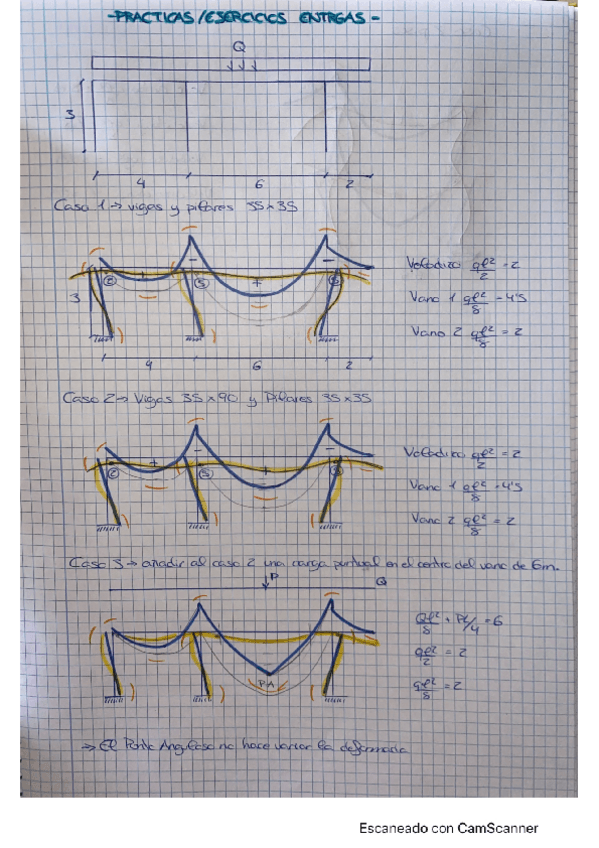 -PRACTICAS/EJERCICIOS ENTREGAS-
Q
3
4 6 2
Caso 1→ vigas y pilares 35x35
Voladizo ql²/2 = 2
- - 
+ +
Vano 1 ql²/8 = 4'5
3
Vano 2 ql²/8 = 2
4 6 2
Caso 2→ Vigas 35x90 y Pilares 35x35
Voladizo ql²/2 = 2
- -
+ +
Vano 1 ql²/8 = 4'5
Vano 2 ql²/8 = 2
Caso 3→ añadir al caso 2 una carga puntual en el centro del vano de 6m.
P Q
Ql²/8 + Pl/4 = 6
ql²/2 = 2
P.A
ql²/8 = 2
→ El Punto Anguloso no hace variar la deformada
Escaneado con CamScanner